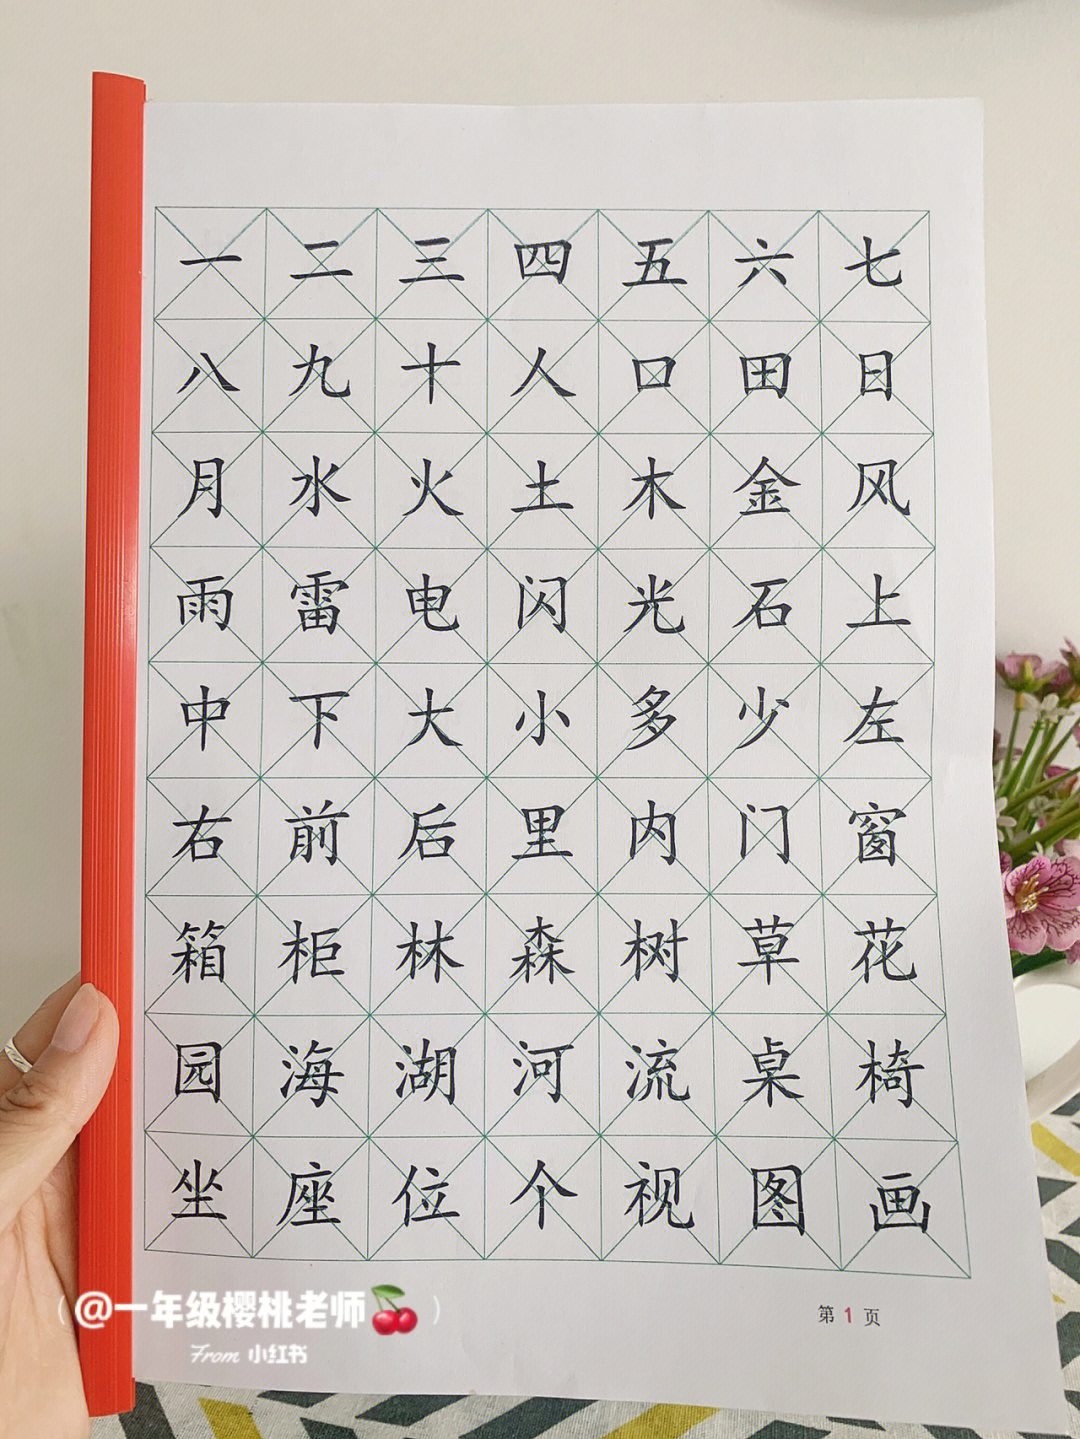 一二三四五六七
八九十人口田日
月水火土木金风
雨雷电闪光石上
中下大小多少左
右前后里内门窗
箱柜林森树草花
园海湖河流桌椅
坐座位个视图画
第1页
(@一年级樱桃老师🍒)
From 小红书